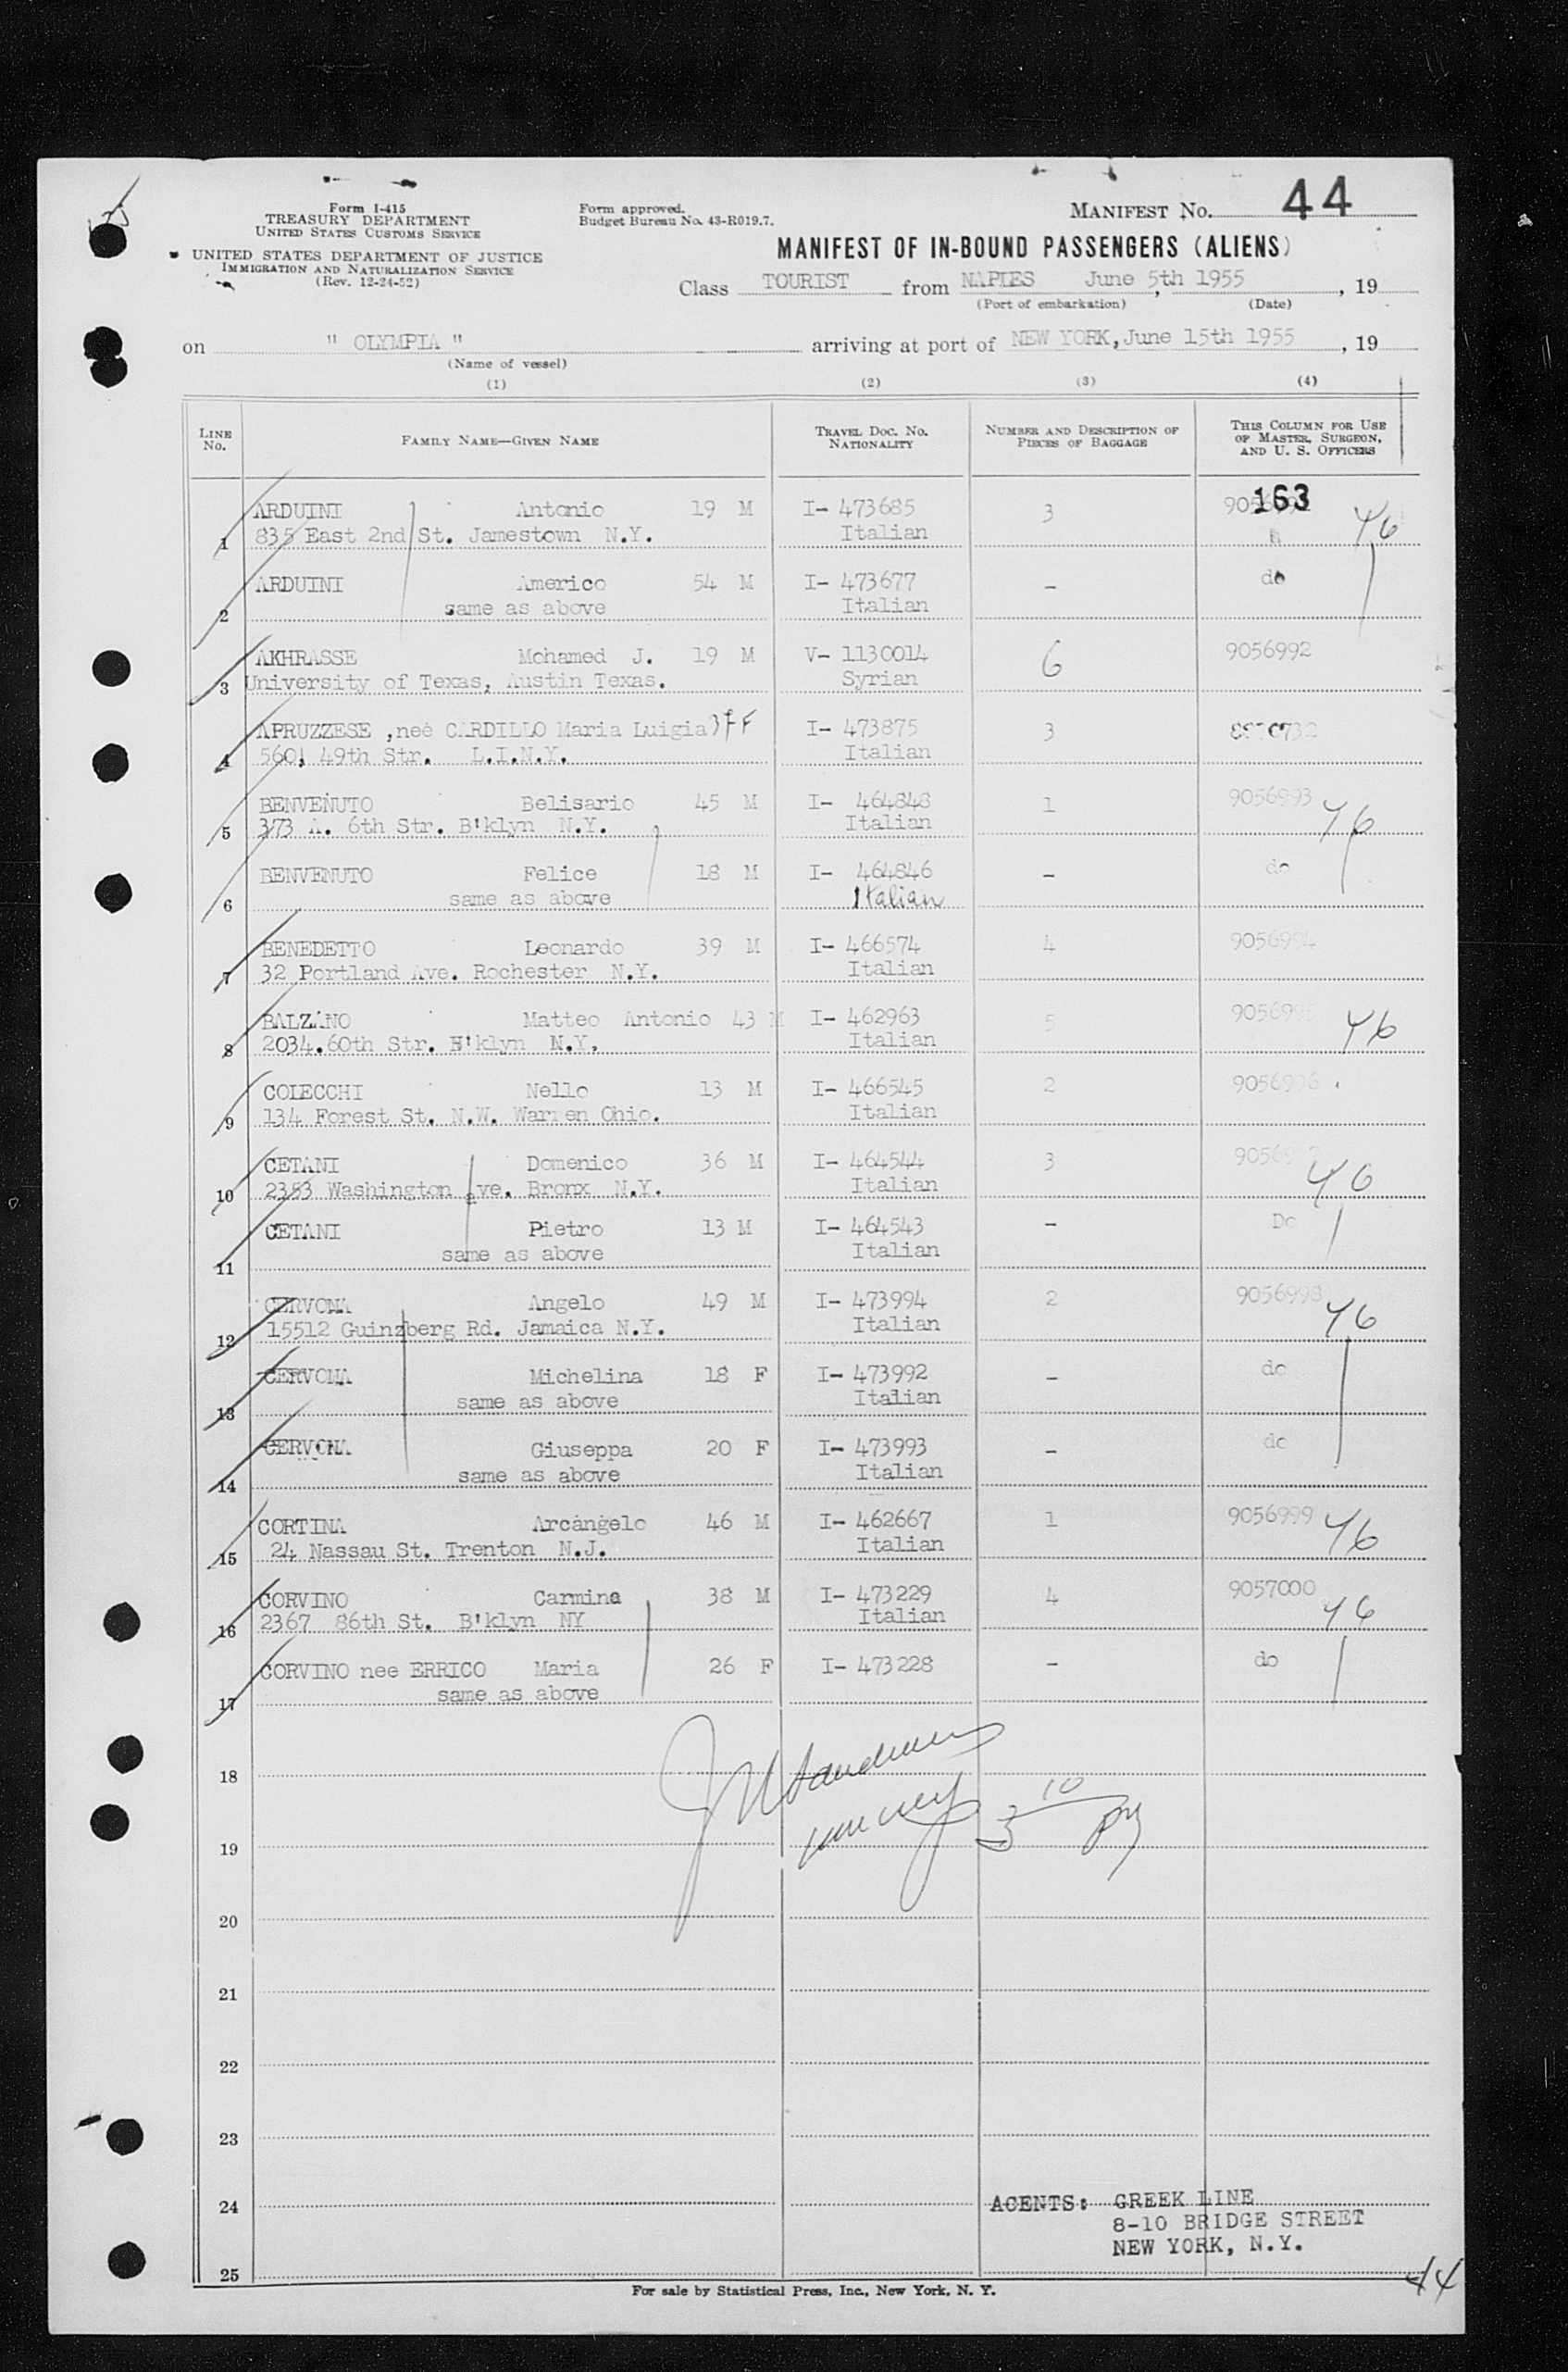 Form I-415
TREASURY DEPARTMENT
UNITED STATES CUSTOMS SERVICE
UNITED STATES DEPARTMENT OF JUSTICE
IMMIGRATION AND NATURALIZATION SERVICE
(Rev. 12-24-52)
Form approved.
Budget Bureau No. 43-R019.7.
MANIFEST No. 44
MANIFEST OF IN-BOUND PASSENGERS (ALIENS)
Class TOURIST from NAPLES, June 5th 1955, 19
(Port of embarkation) (Date)
on " OLYMPIA " arriving at port of NEW YORK, June 15th 1955, 19
(Name of vessel)
(1) (2) (3) (4)
LINE No. FAMILY NAME—GIVEN NAME TRAVEL DOC. NO. NATIONALITY NUMBER AND DESCRIPTION OF PIECES OF BAGGAGE THIS COLUMN FOR USE OF MASTER, SURGEON, AND U. S. OFFICERS
163
ARDUINI Antonio 19 M I- 473685 3 46
1 835 East 2nd St. Jamestown N.Y. Italian
ARDUINI Americo 54 M I- 473677 - do
2 same as above Italian
AKHRASSE Mohamed J. 19 M V- 1130014 6 9056992
3 University of Texas, Austin Texas. Syrian
APRUZZESE ,neè CARDILLO Maria Luigia 37 F I- 473875 3
4 560, 49th Str. L.I.N.Y. Italian
BENVENUTO Belisario 45 M I- 464848 1 9056993 46
5 373 A. 6th Str. B'klyn N.Y. Italian
BENVENUTO Felice 18 M I- 464846 - do
6 same as above Italian
BENEDETTO Leonardo 39 M I- 466574 4 9056994
7 32 Portland Ave. Rochester N.Y. Italian
BALZANO Matteo Antonio 43 M I- 462963 5 9056995 46
8 2034.60th Str. B'klyn N.Y. Italian
COLECCHI Nello 13 M I- 466545 2 9056996
9 134 Forest St. N.W. Warren Ohio. Italian
CETANI Domenico 36 M I- 464544 3 46
10 2383 Washington ave. Bronx N.Y. Italian
CETANI Pietro 13 M I- 464543 - Do
11 same as above Italian
CERVONA Angelo 49 M I- 473994 2 9056998 46
12 15512 Guinzberg Rd. Jamaica N.Y. Italian
CERVONA Michelina 18 F I- 473992 - do
13 same as above Italian
CERVONA Giuseppa 20 F I- 473993 - do
14 same as above Italian
CORTINA Arcangelo 46 M I- 462667 1 9056999 46
15 24 Nassau St. Trenton N.J. Italian
CORVINO Carmine 38 M I- 473229 4 9057000 46
16 2367 86th St. B'klyn NY Italian
CORVINO nee ERRICO Maria 26 F I- 473228 - do
17 same as above
18
3 10 PM
19
20
21
22
23
24 AGENTS: GREEK LINE
8-10 BRIDGE STREET
NEW YORK, N.Y.
25
44
For sale by Statistical Press, Inc., New York, N. Y.